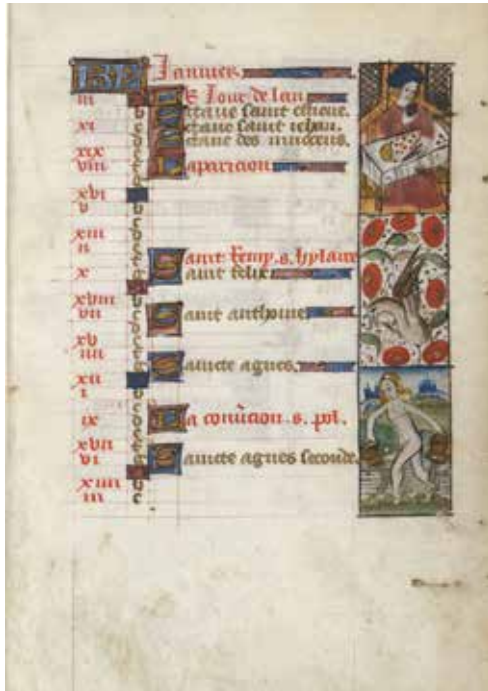 Januier
iii Jour de lan
Octaue saint estiene.
xi Octaue saint iehan.
Octaue des innocens.
xix
viii Laparicion
xvi
v
xiii
ii
Saint Remy. s. hylaire
x Saint felix
xviii
vii Saint anthoine
xv
iiii
Saincte agnes.
xii
i
ix La conu̅cion. s. pol.
xvii
vi Saincte agnes seconde.
xiiii
iii